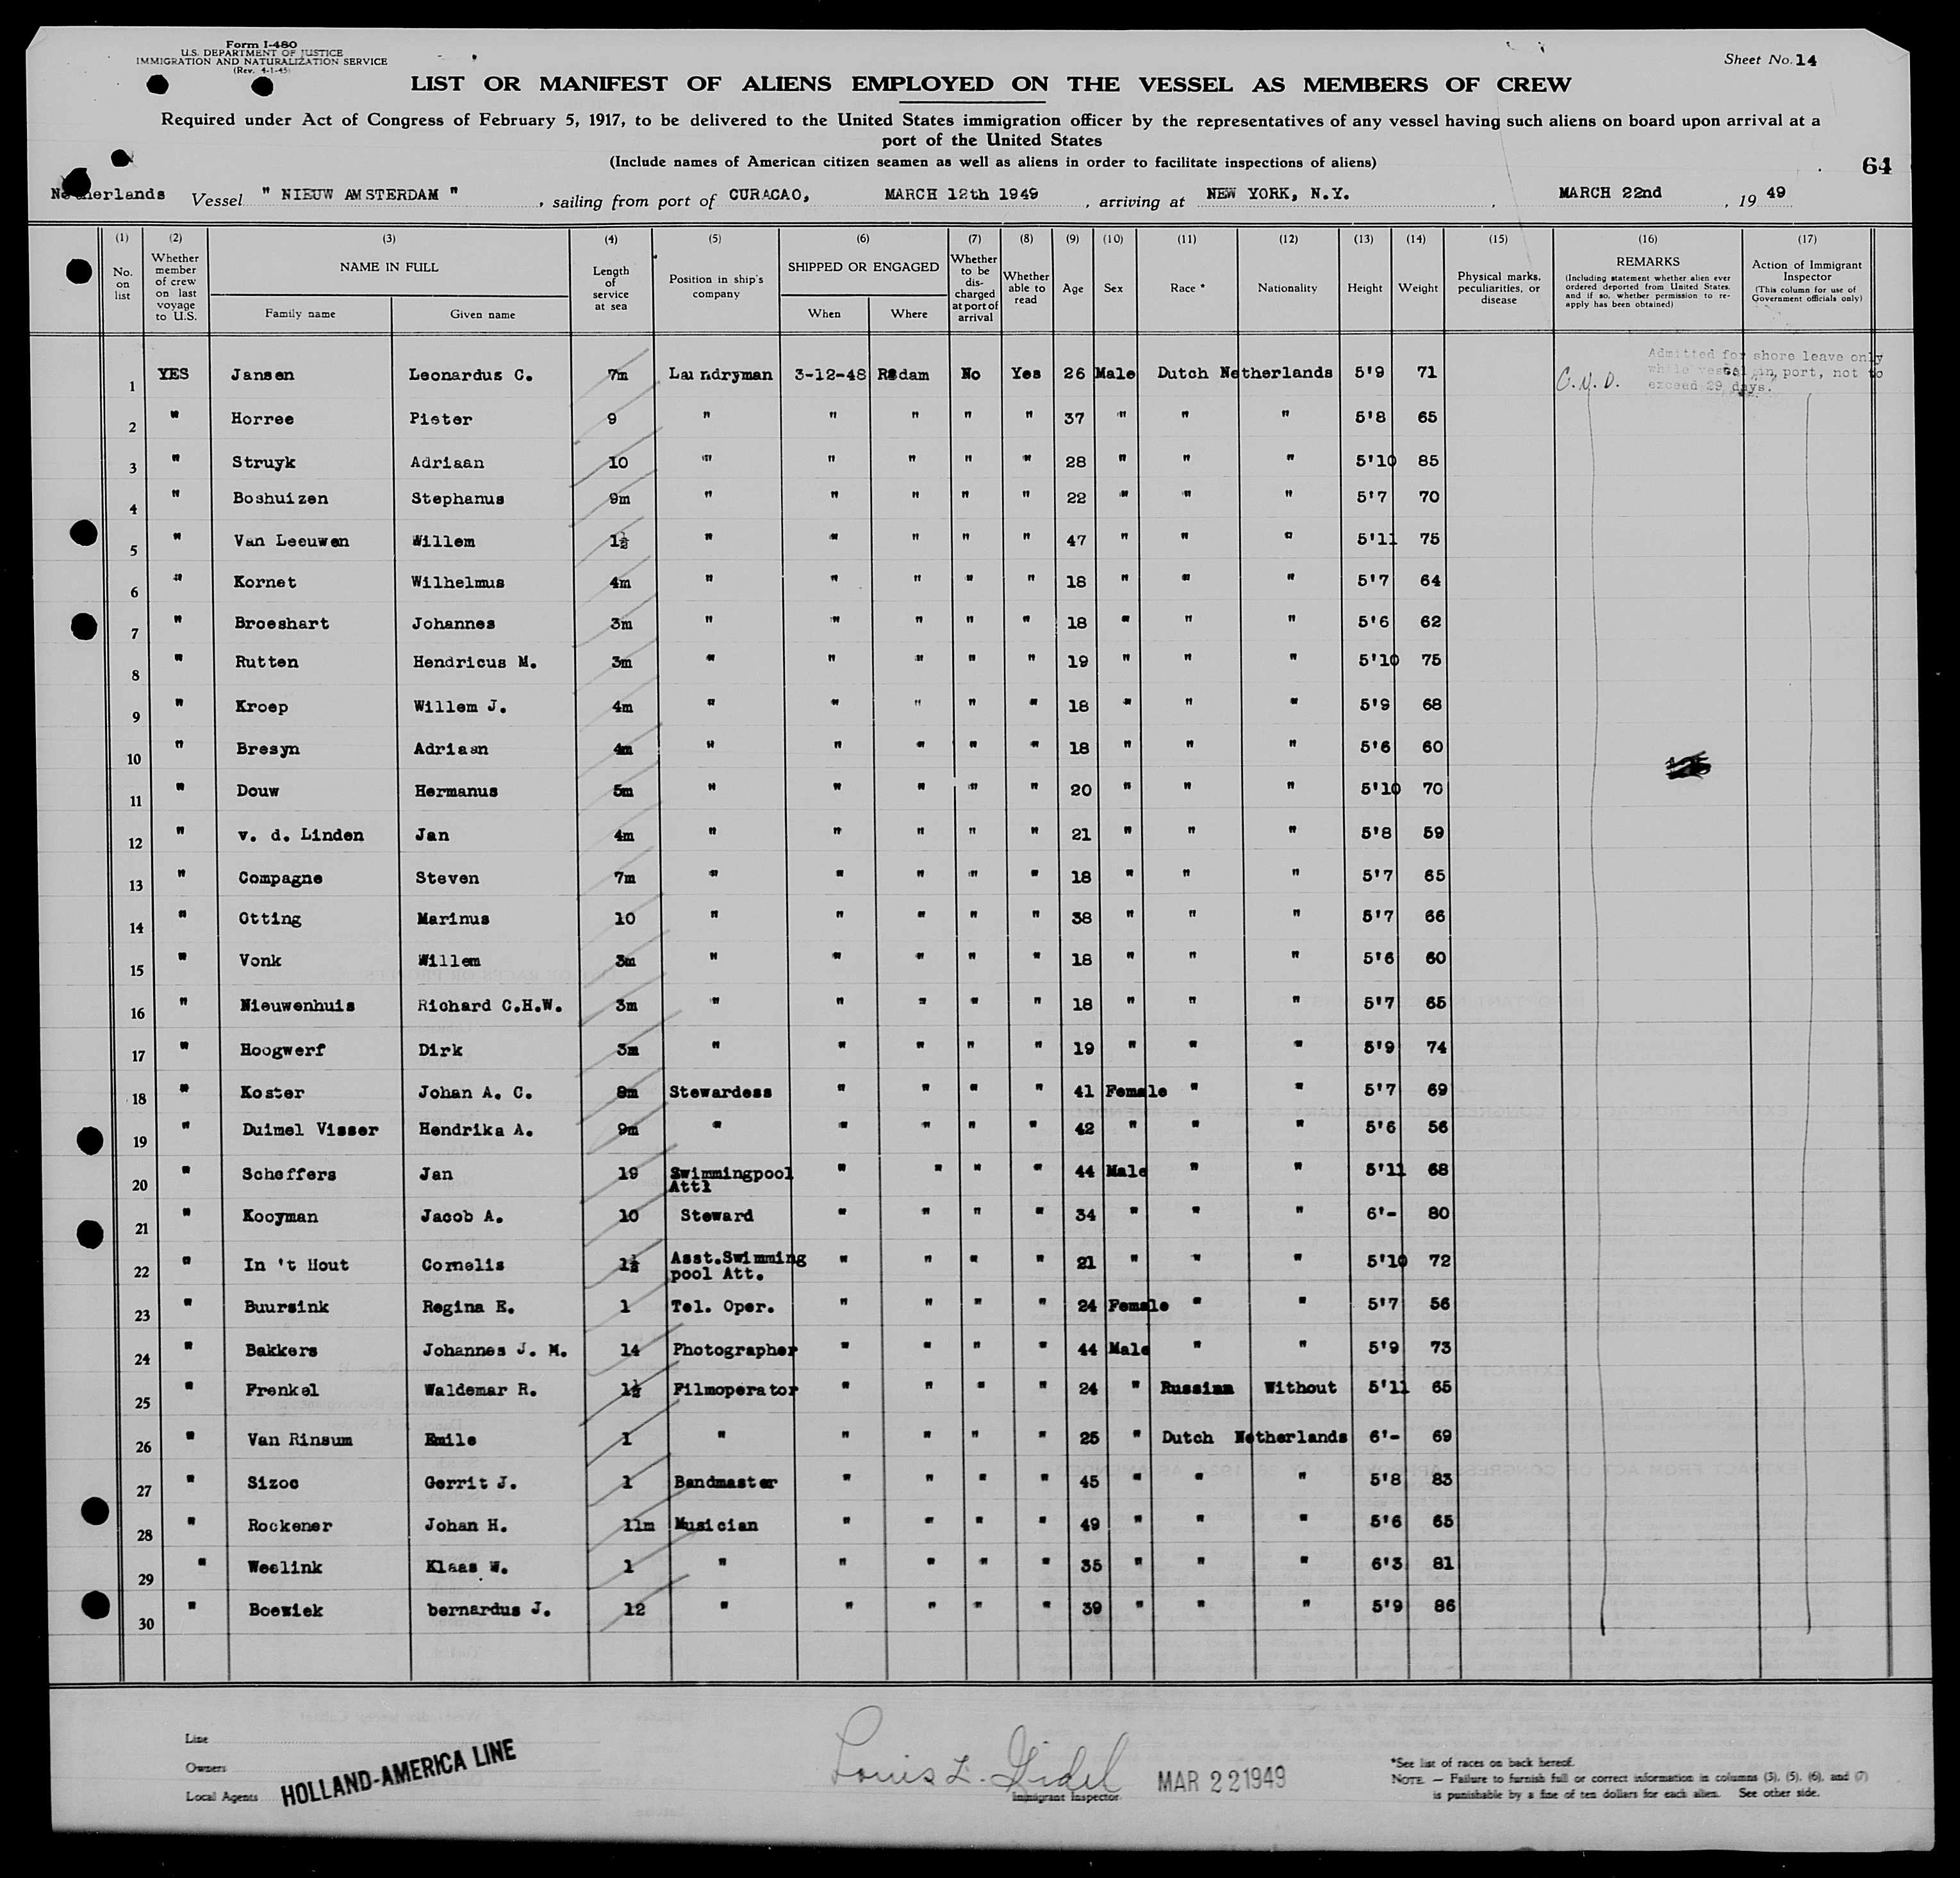 Form I-480
U.S. DEPARTMENT OF JUSTICE
IMMIGRATION AND NATURALIZATION SERVICE
(Rev. 4-1-45)
Sheet No. 14
LIST OR MANIFEST OF ALIENS EMPLOYED ON THE VESSEL AS MEMBERS OF CREW
Required under Act of Congress of February 5, 1917, to be delivered to the United States immigration officer by the representatives of any vessel having such aliens on board upon arrival at a
port of the United States
(Include names of American citizen seamen as well as aliens in order to facilitate inspections of aliens)
64
Netherlands Vessel " NIEUW AMSTERDAM " , sailing from port of CURACAO, MARCH 12th 1949 , arriving at NEW YORK, N.Y. , MARCH 22nd , 19 49
(1) No. on list
(2) Whether member of crew on last voyage to U.S.
(3) NAME IN FULL Family name Given name
(4) Length of service at sea
(5) Position in ship's company
(6) SHIPPED OR ENGAGED When Where
(7) Whether to be discharged at port of arrival
(8) Whether able to read
(9) Age
(10) Sex
(11) Race *
(12) Nationality
(13) Height
(14) Weight
(15) Physical marks, peculiarities, or disease
(16) REMARKS (Including statement whether alien ever ordered deported from United States, and if so, whether permission to re-apply has been obtained)
(17) Action of Immigrant Inspector (This column for use of Government officials only)
Admitted for shore leave only
while vessel in port, not to
exceed 29 days.
1 YES Jansen Leonardus C. 7m Laundryman 3-12-48 R$dam No Yes 26 Male Dutch Netherlands 5'9 71
2 " Horree Pieter 9 " " " " " 37 " " " 5'8 65
3 " Struyk Adriaan 10 " " " " " 28 " " " 5'10 85
4 " Boshuizen Stephanus 9m " " " " " 22 " " " 5'7 70
5 " Van Leeuwen Willem 1½ " " " " " 47 " " " 5'11 75
6 " Kornet Wilhelmus 4m " " " " " 18 " " " 5'7 64
7 " Broeshart Johannes 3m " " " " " 18 " " " 5'6 62
8 " Rutten Hendricus M. 3m " " " " " 19 " " " 5'10 75
9 " Kroep Willem J. 4m " " " " " 18 " " " 5'9 68
10 " Bresyn Adriaan 4m " " " " " 18 " " " 5'6 60
11 " Douw Hermanus 5m " " " " " 20 " " " 5'10 70
12 " v. d. Linden Jan 4m " " " " " 21 " " " 5'8 59
13 " Compagne Steven 7m " " " " " 18 " " " 5'7 65
14 " Otting Marinus 10 " " " " " 38 " " " 5'7 66
15 " Vonk Willem 3m " " " " " 18 " " " 5'6 60
16 " Nieuwenhuis Richard C.H.W. 3m " " " " " 18 " " " 5'7 65
17 " Hoogwerf Dirk 3m " " " " " 19 " " " 5'9 74
18 " Koster Johan A. C. 8m Stewardess " " " " 41 Female " " 5'7 69
19 " Duimel Visser Hendrika A. 9m " " " " " 42 " " " 5'6 56
20 " Scheffers Jan 19 Swimmingpool Attl " " " " 44 Male " " 5'11 68
21 " Kooyman Jacob A. 10 Steward " " " " 34 " " " 6'- 80
22 " In 't Hout Cornelis 1½ Asst.Swimming pool Att. " " " " 21 " " " 5'10 72
23 " Buursink Regina E. 1 Tel. Oper. " " " " 24 Female " " 5'7 56
24 " Bakkers Johannes J. M. 14 Photographer " " " " 44 Male " " 5'9 73
25 " Frenkel Waldemar R. 1½ Filmoperator " " " " 24 " Russian Without 5'11 65
26 " Van Rinsum Emile 1 " " " " " 25 " Dutch Netherlands 6'- 69
27 " Sizoo Gerrit J. 1 Bandmaster " " " " 45 " " " 5'8 83
28 " Rockener Johan H. 11m Musician " " " " 49 " " " 5'6 65
29 " Weelink Klaas W. 1 " " " " " 35 " " " 6'3 81
30 " Boewiek bernardus J. 12 " " " " " 39 " " " 5'9 86
Line
Owners
Local Agents HOLLAND-AMERICA LINE
Immigrant Inspector
MAR 22 1949
*See list of races on back hereof.
NOTE. — Failure to furnish full or correct information in columns (3), (5), (6), and (7)
is punishable by a fine of ten dollars for each alien. See other side.